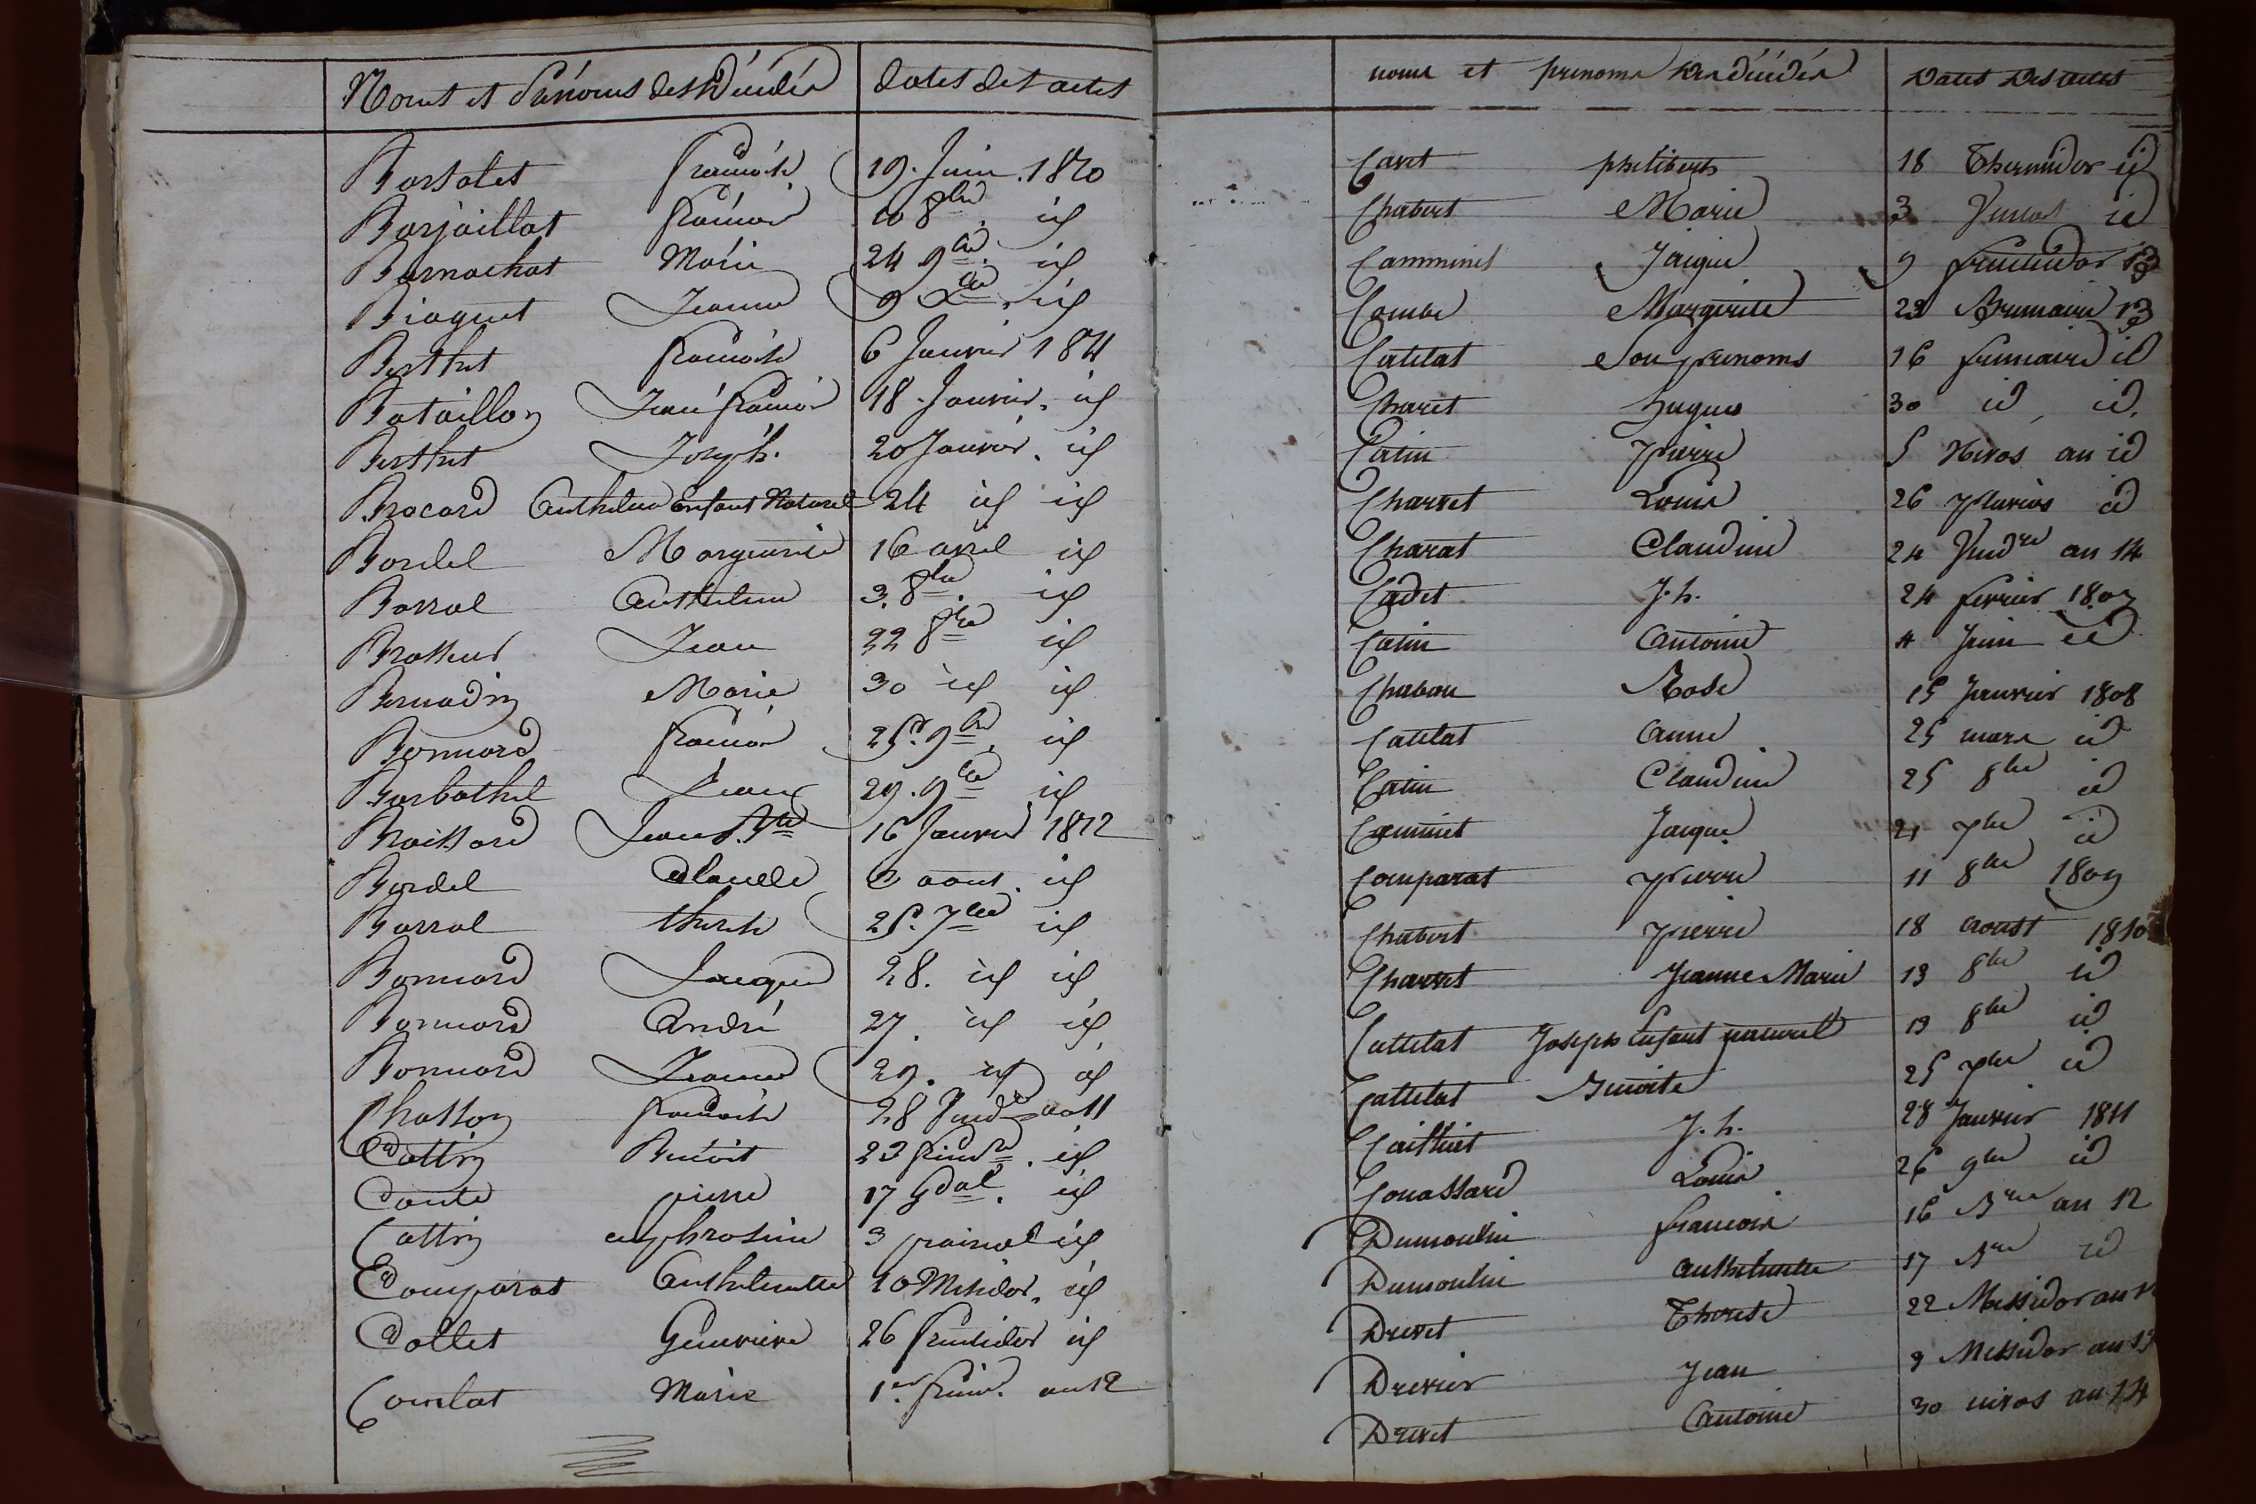 Noms et Prénoms des Décédés dates des actes
Bartolet françoise 19. Juin. 1810
Barjaillat françois 10 8bre. id
Barnachat Marie 24 9bre. id
Biaguet Jeanne 9 Xbre. id
Berthet françoise 6 Janvier 1811
Bataillon Jean françois 18. Janvier. id
Berthet Joseph. 20 Janvier. id
Brocard Anthelme Enfant Naturel 24 id id
Bordel Marguerite 16 avril id
Barral Anthelme 3. 8bre. id
Brasseur Jean 22 8bre id
Bernadin Marie 30 id id
Bonnard françois 25. 9bre. id
Barbothel Jean 29. 9bre id
Boissard Jean Bte 16 Janvier 1812
Bordel Claude 2 aout. id
Barral therese 25. 7bre id
Bonnard Jacques 28. id id
Bonnard André 27. id id
Bonnard Jeanne 29. id id
Chasson françoise 28 Vend. an 11
Cattin Benoit 23 frim. id
Conte pierre 17 Gal. id
Cattin euphrosine 3 prairial id
Comparat Anthelmette 10 Messidor. id
Collet Genevieve 26 fructidor id
Courlat Marie 1er frim. an 12
noms et prenoms des décédés Dates Des actes
Cavet philiberte 18 Thermidor id
Chabert Marie 3 id
Camminet Jacques 9 fructidor 12
Combe Margerite 23 Brumaire 13
Catelat Son prenoms 16 frimaire id
Charet hugues 30 id, id.
Catin pierre 5 Nivos an id
Charvet Louis 26 pluvios id
Charat Claudine 24 Vendre an 14
Cadet J.h. 24 fevrier 1807
Catin Antoine 4 Juin id
Chabou Rose 15 Janvier 1808
Catelat anne 25 mars id
Catin Claudine 25 8bre id
Camminet Jacque 21 7bre id
Comparat pierre 11 8bre 1809
Chabert pierre 18 aoust 1810
Charvet Jeanne Marie 13 8bre id
Cattelat Joseph Enfant naturel 19 8bre id
Cattelat Benoite 25 7bre id
Caithiet J.h. 28 Janvier 1811
Couassard Louis 26 9bre id
Dumoulin francois 16 Bre an 12
Dumoulin anthelmette 17 Bre id
Drevet Therese 22 Messidor an
Drevier Jean 9 Messidor an 13
Drevet Antoine 30 nivos an 14